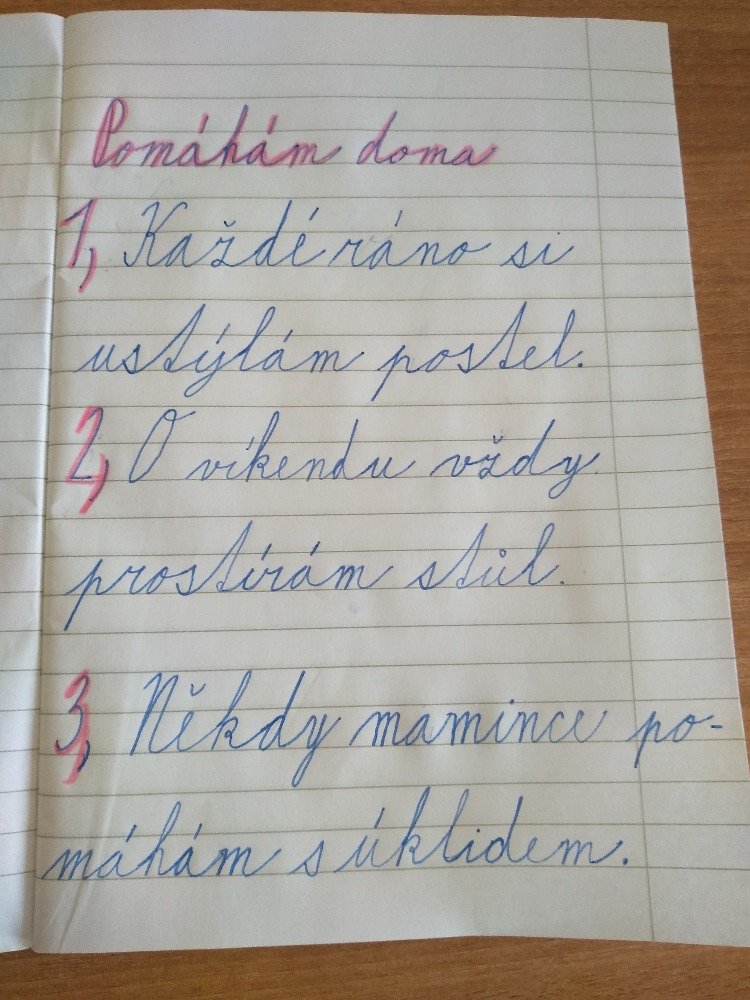 Pomáhám doma
1, Každé ráno si
ustýlám postel.
2, O víkendu vždy
prostírám stůl.
3, Někdy mamince po-
máhám s úklidem.